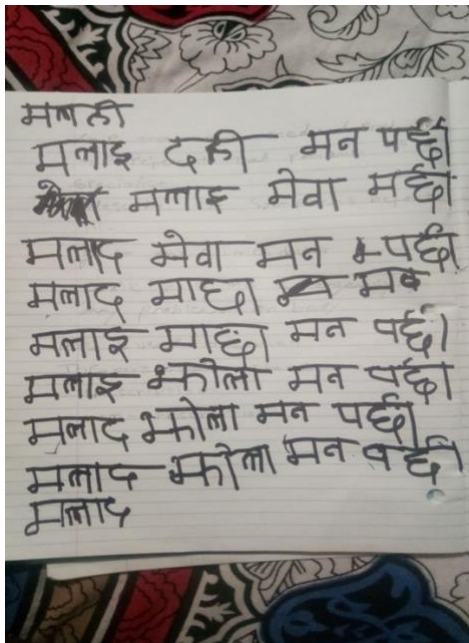 मलली
मलाइ दही मन पर्छ।
मलाइ मेवा मर्छ।
मलाद मेवा मन पर्छ।
मलाद माछा मन
मलाइ माछा मन पर्छ।
मलाइ झोला मन पर्छ।
मलाद झोला मन पर्छ।
मलाद झोला मन पर्छ
मलाद